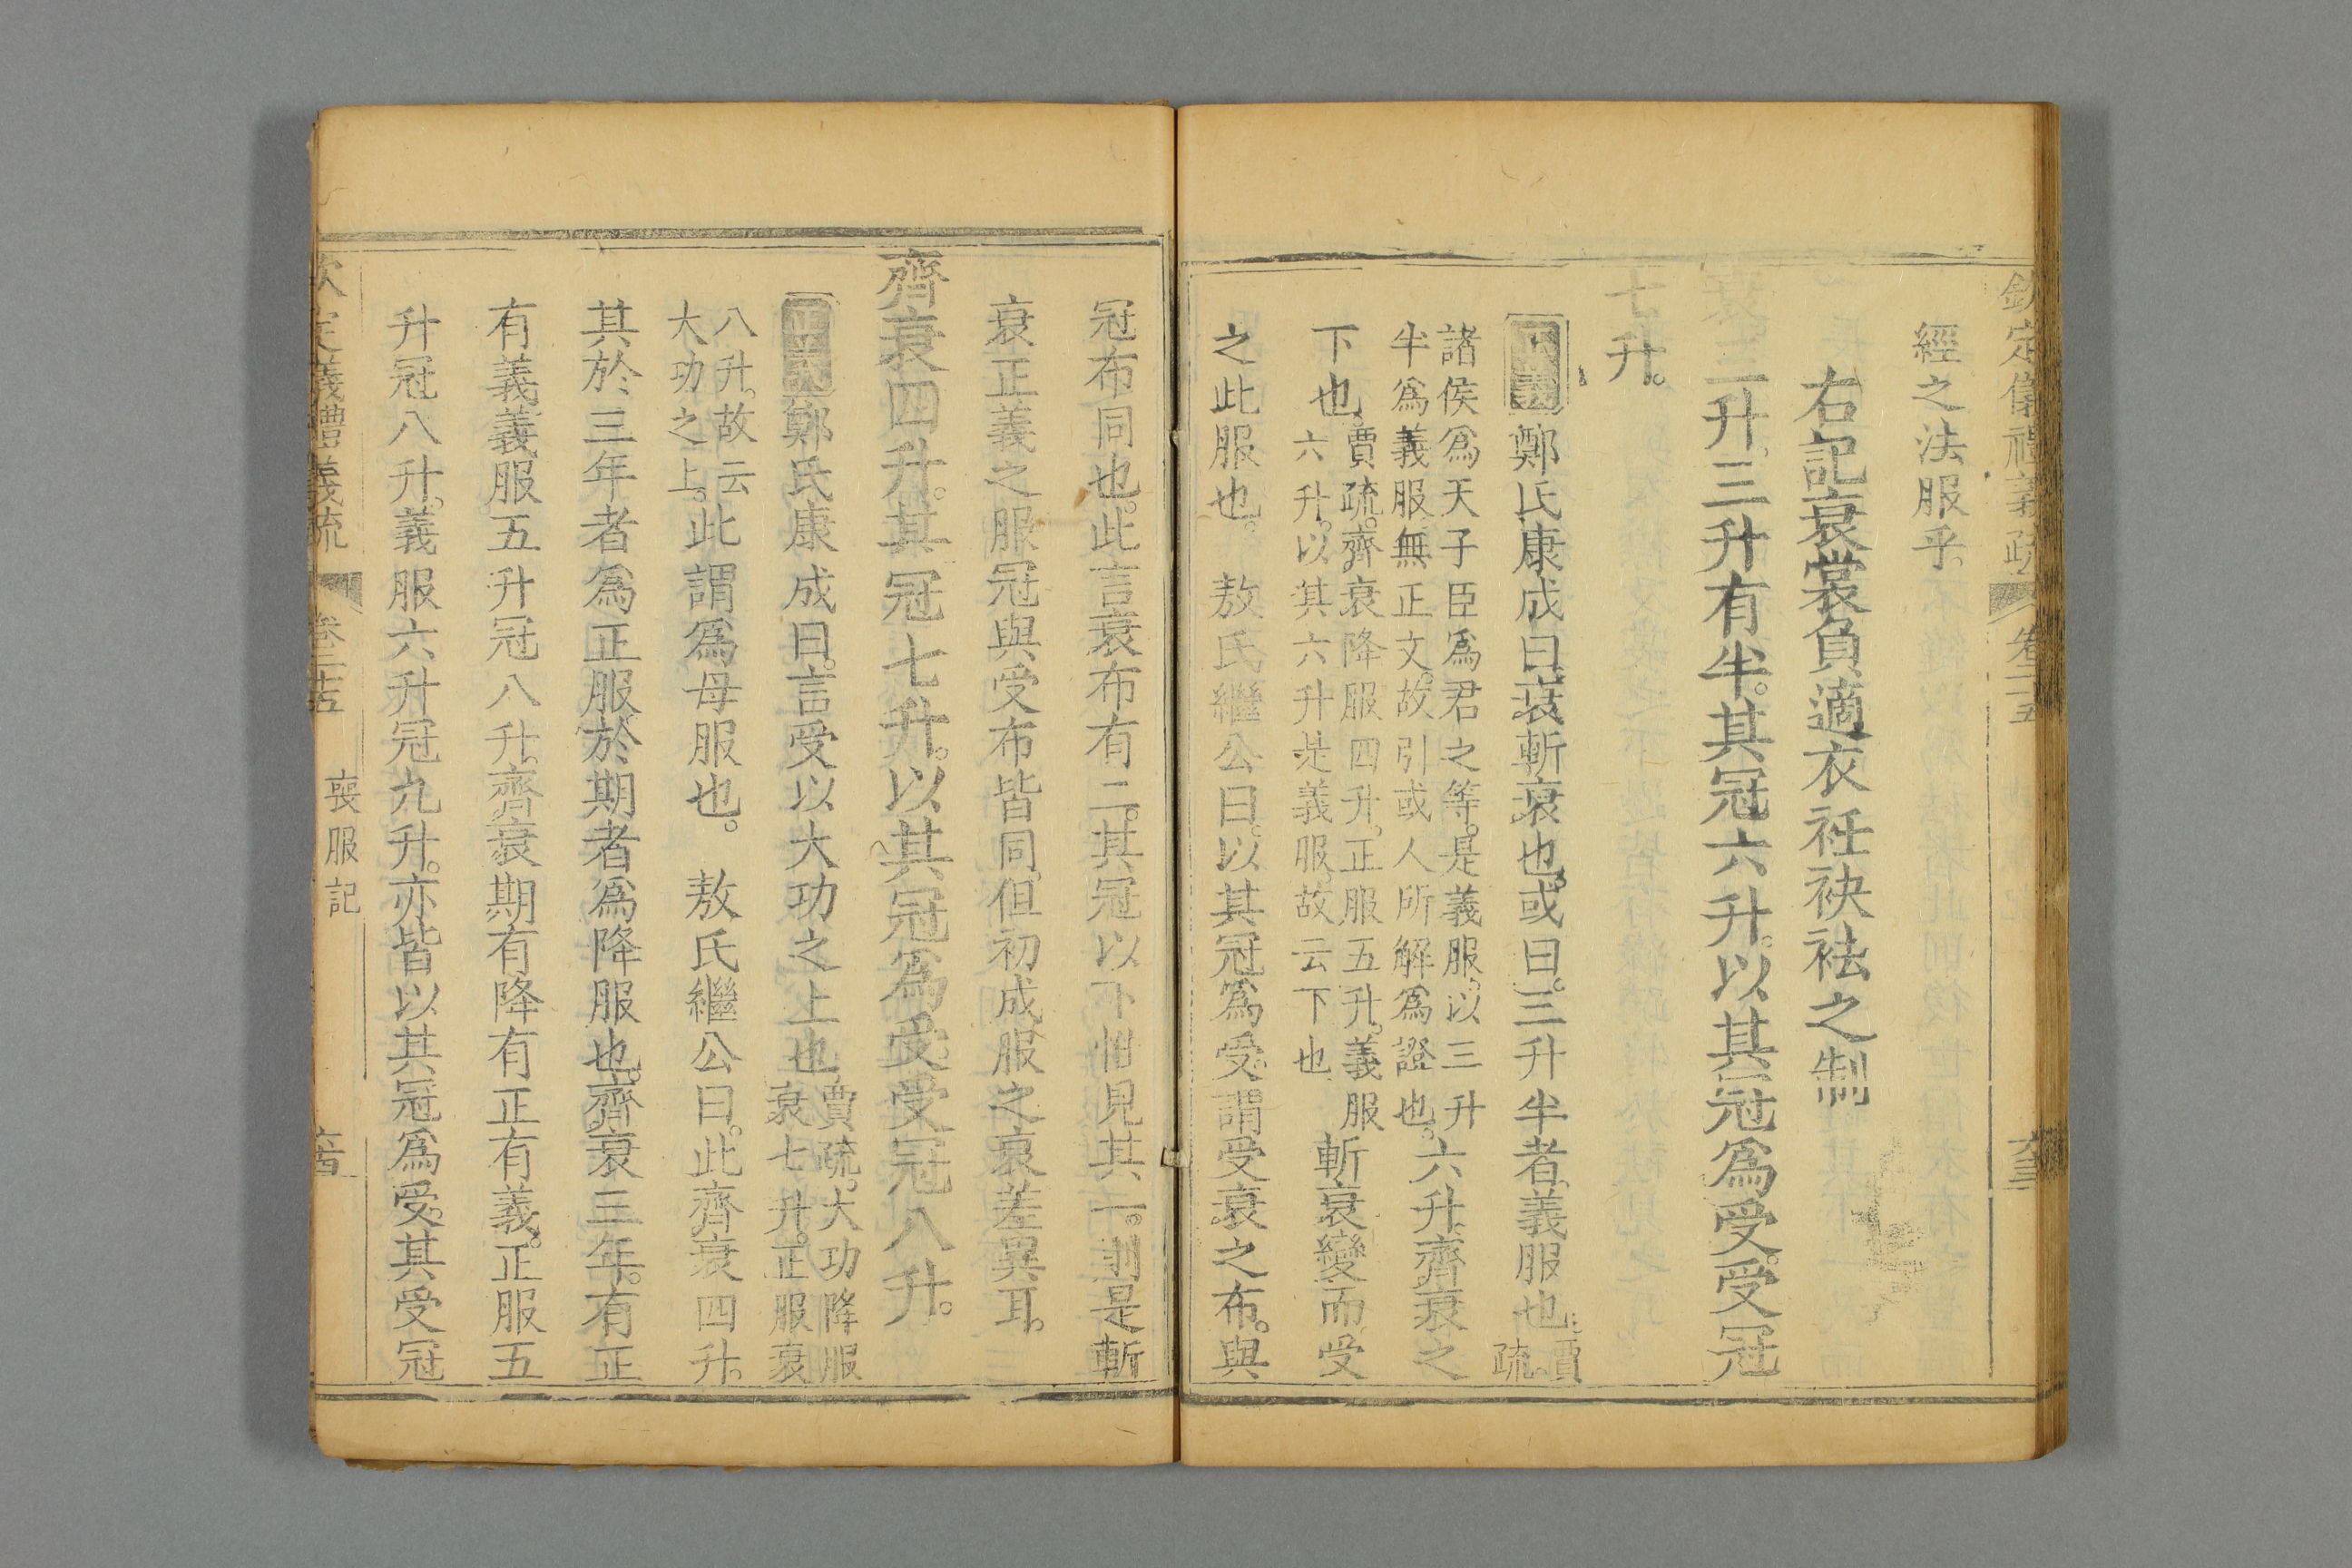 欽定儀禮義疏 卷二十五
經之法服乎。
右記衰裳負適衣衽袂袪之制
衰三升。三升有半。其冠六升。以其冠爲受。受冠
七升。
正義鄭氏康成曰。衰斬衰也。或曰。三升半者。義服也。賈疏。
諸侯爲天子臣爲君之等。是義服。以三升
半爲義服無正文。故引或人所解爲證也。六升。齊衰之
下也。賈疏。齊衰降服四升。正服五升。義服
六升。以其六升是義服。故云下也 斬衰變而受
之此服也。 敖氏繼公曰。以其冠爲受。謂受衰之布。與
冠布同也。此言衰布有二。其冠以下惟見其一。則是斬
衰正義之服冠與受布皆同。但初成服之衰差異耳。
齊衰四升。其冠七升。以其冠爲受。受冠八升。
正義鄭氏康成曰。言受以大功之上也。賈疏。大功降服
衰七升。正服衰
八升。故云
大功之上。此謂爲母服也。 敖氏繼公曰。此齊衰四升。
其於三年者爲正服於期者爲降服也。齊衰三年。有正
有義義服五升冠八升。齊衰期有降有正有義。正服五
升冠八升。義服六升冠九升。亦皆以其冠爲受。其受冠
欽定義禮義疏 卷二十五 喪服記